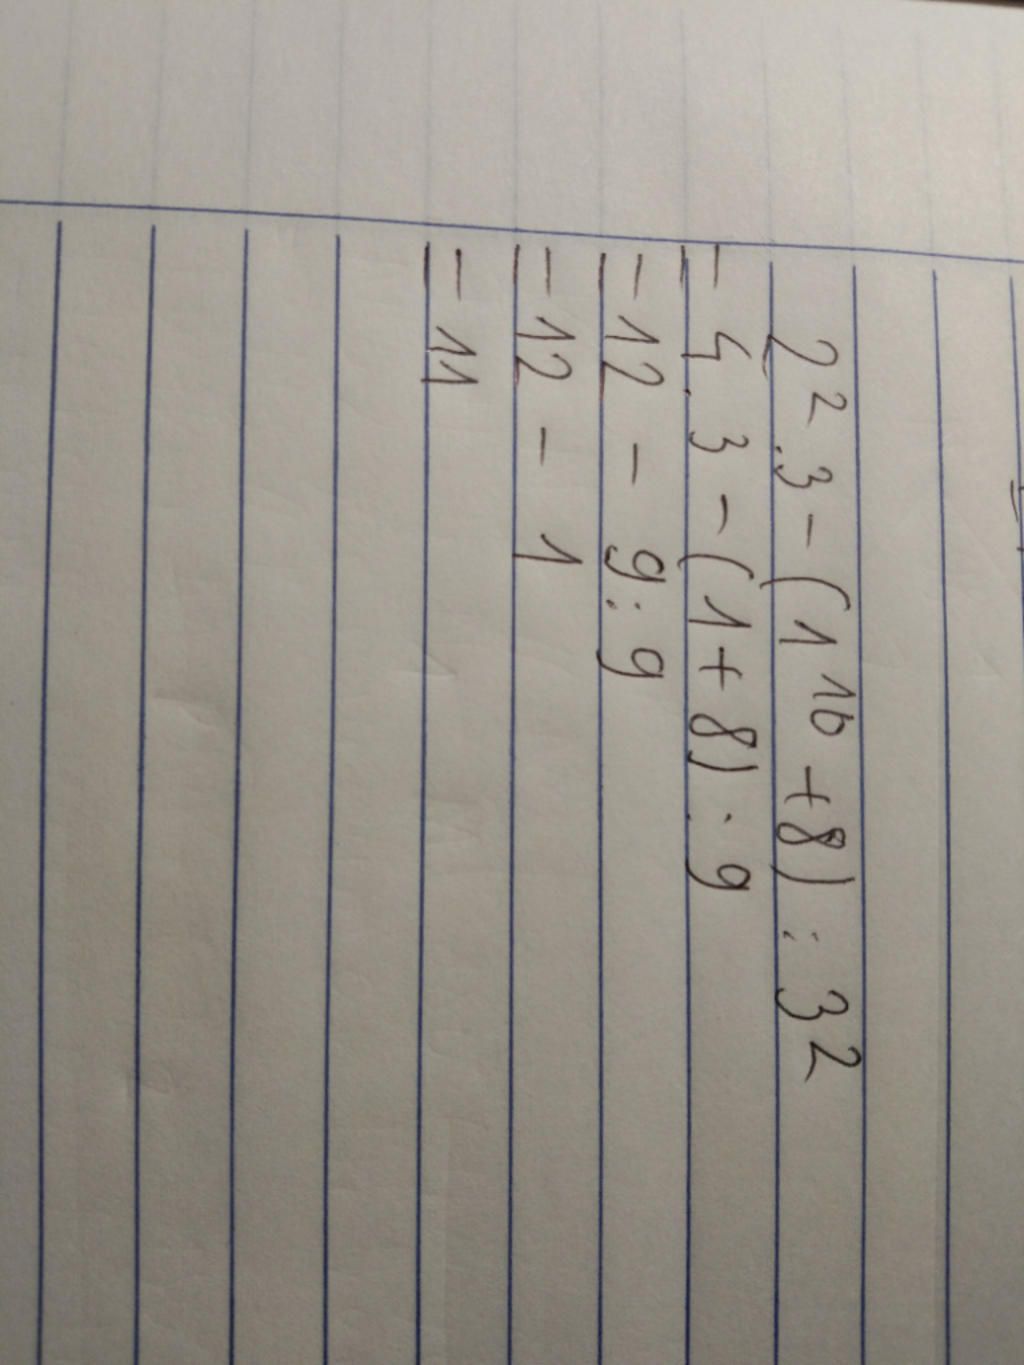 2² . 3 - (1¹⁰ + 8) : 3²
= 4 . 3 - (1 + 8) : 9
= 12 - 9 : 9
= 12 - 1
= 11